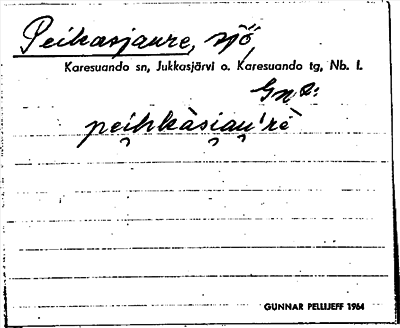 Peikasjaure, sjö
Karesuando sn, Jukkasjärvi o. Karesuando tg, Nb. l.
peihkàsi̯au̯'rè
GUNNAR PELLIJEFF 1964